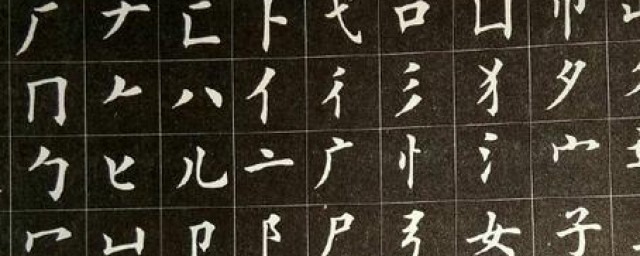 厂 ナ 匚 卜 弋 口 凵 巾
冂 𠂉 八 亻 彳 彡 犭 夕
勹 匕 儿 亠 广 忄 氵 宀
冖 凵 卩 阝 尸 弓 女 子